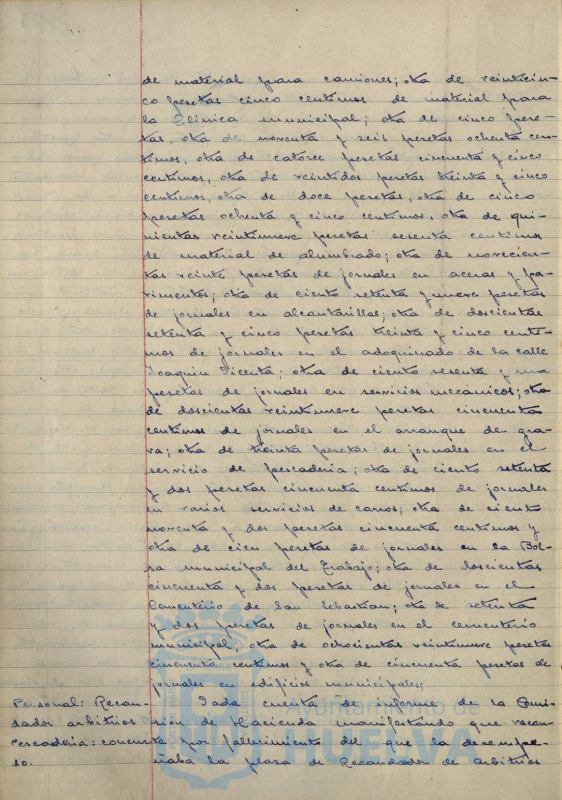 de material para camiones; otra de veinticin-
co pesetas cinco centimos de material para
la Clinica municipal; otra de cinco pese-
tas, otra de noventa y seis pesetas ochenta cen-
timos, otra de catorce pesetas cincuenta y cinco
centimos, otra de veintidos pesetas treinta y cinco
centimos, otra de doce pesetas, otra de cinco
pesetas ochenta y cinco centimos, otra de qui-
nientas veintinueve pesetas sesenta centimos
de material de alumbrado; otra de novecien-
tas veinte pesetas de jornales en aceras y pa-
vimentos; otra de ciento setenta y nueve pesetas
de jornales en alcantarillas; otra de doscientas
setenta y cinco pesetas treinta y cinco centi-
mos de jornales en el adoquinado de la calle
Joaquin Dicenta; otra de ciento sesenta y una
pesetas de jornales en servicios mecánicos; otra
de doscientas veintinueve pesetas cincuenta
centimos de jornales en el arranque de gra-
va; otra de treinta pesetas de jornales en el
servicio de pescaderia; otra de ciento setenta
y dos pesetas cincuenta centimos de jornales
en varios servicios de carros; otra de ciento
noventa y dos pesetas cincuenta centimos y
otra de cien pesetas de jornales en la Bol-
sa municipal del Trabajo; otra de doscientas
cincuenta y dos pesetas de jornales en el
Cementerio de San Sebastian; otra de setenta
y dos pesetas de jornales en el cementerio
municipal; otra de ochocientas veintinueve pesetas
cincuenta centimos y otra de cincuenta pesetas de
jornales en edificios municipales;
Personal: Recau-
dador arbitrios
Pescaderia: concur-
so.
Dada cuenta de informe de la Comi-
sión de Hacienda manifestando que vacan-
te por fallecimiento del que la desempe-
ñaba la plaza de Recaudador de arbitrios
Ayuntamiento de
HUELVA